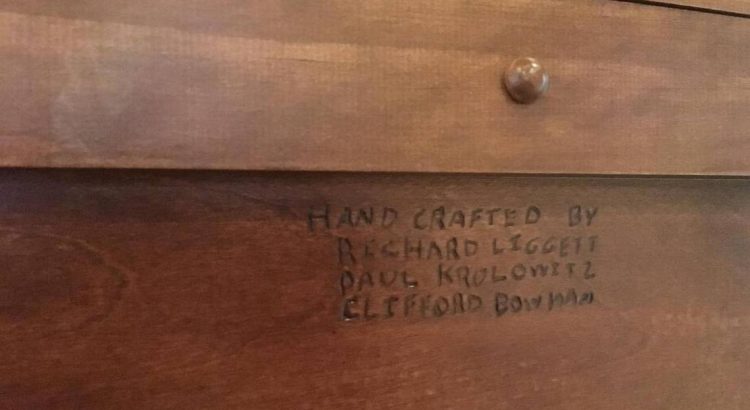 HAND CRAFTED BY
RICHARD LIGGETT
PAUL KROLOWITZ
CLIFFORD BOWMAN